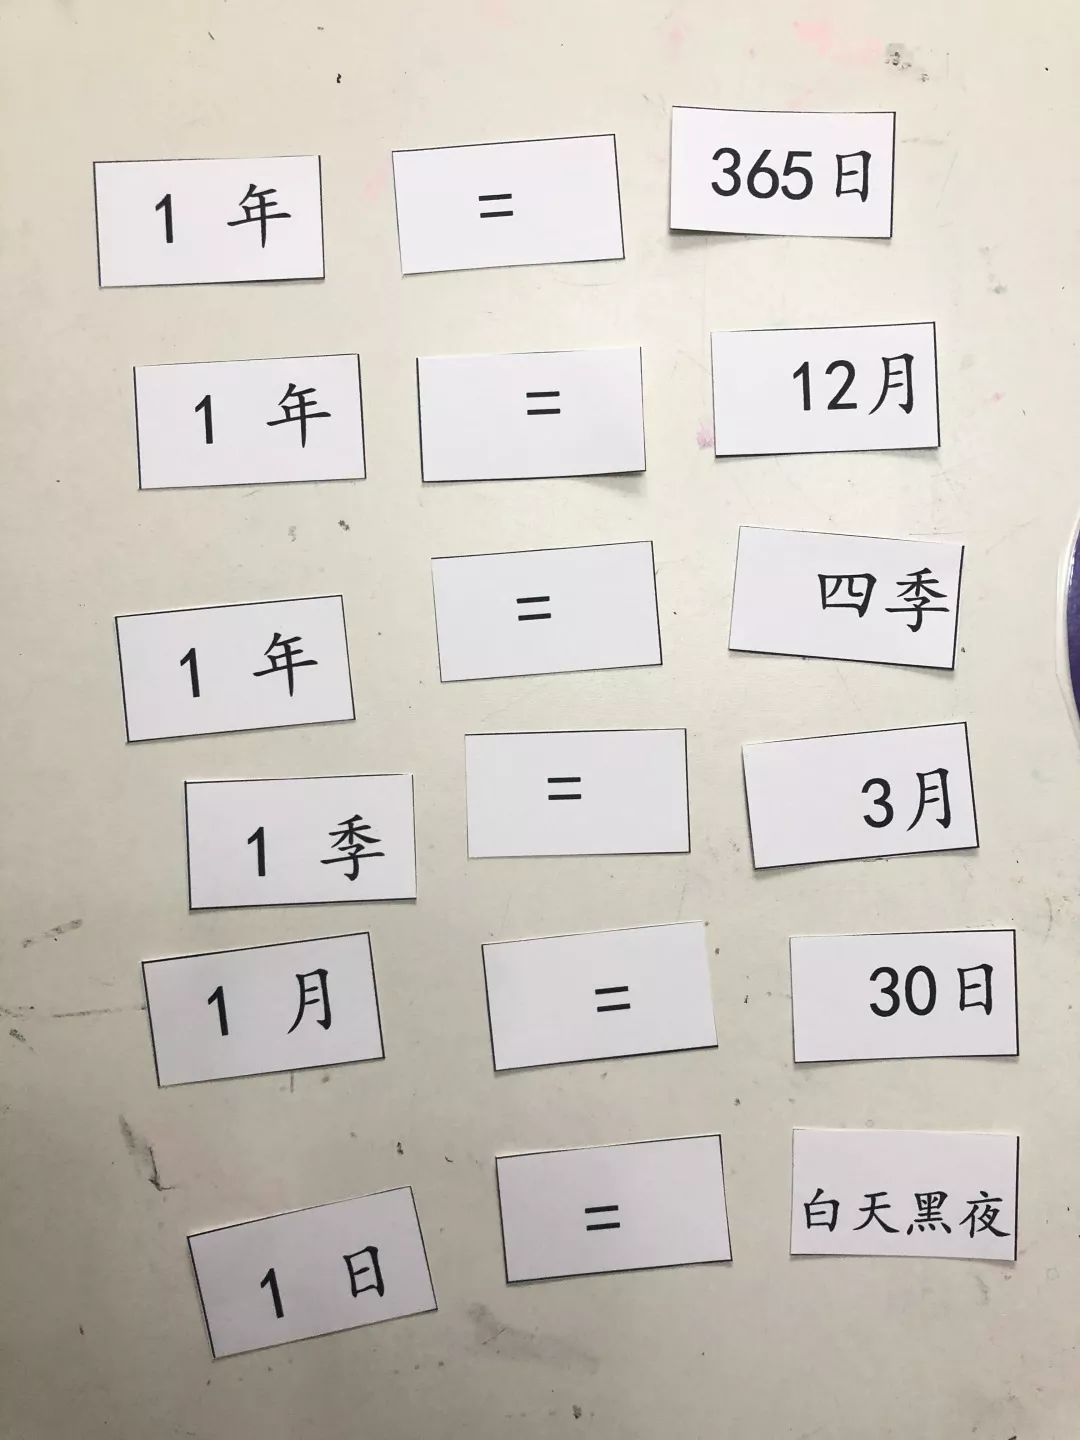 1 年 = 365日
1 年 = 12月
1 年 = 四季
1 季 = 3月
1 月 = 30日
1 日 = 白天黑夜